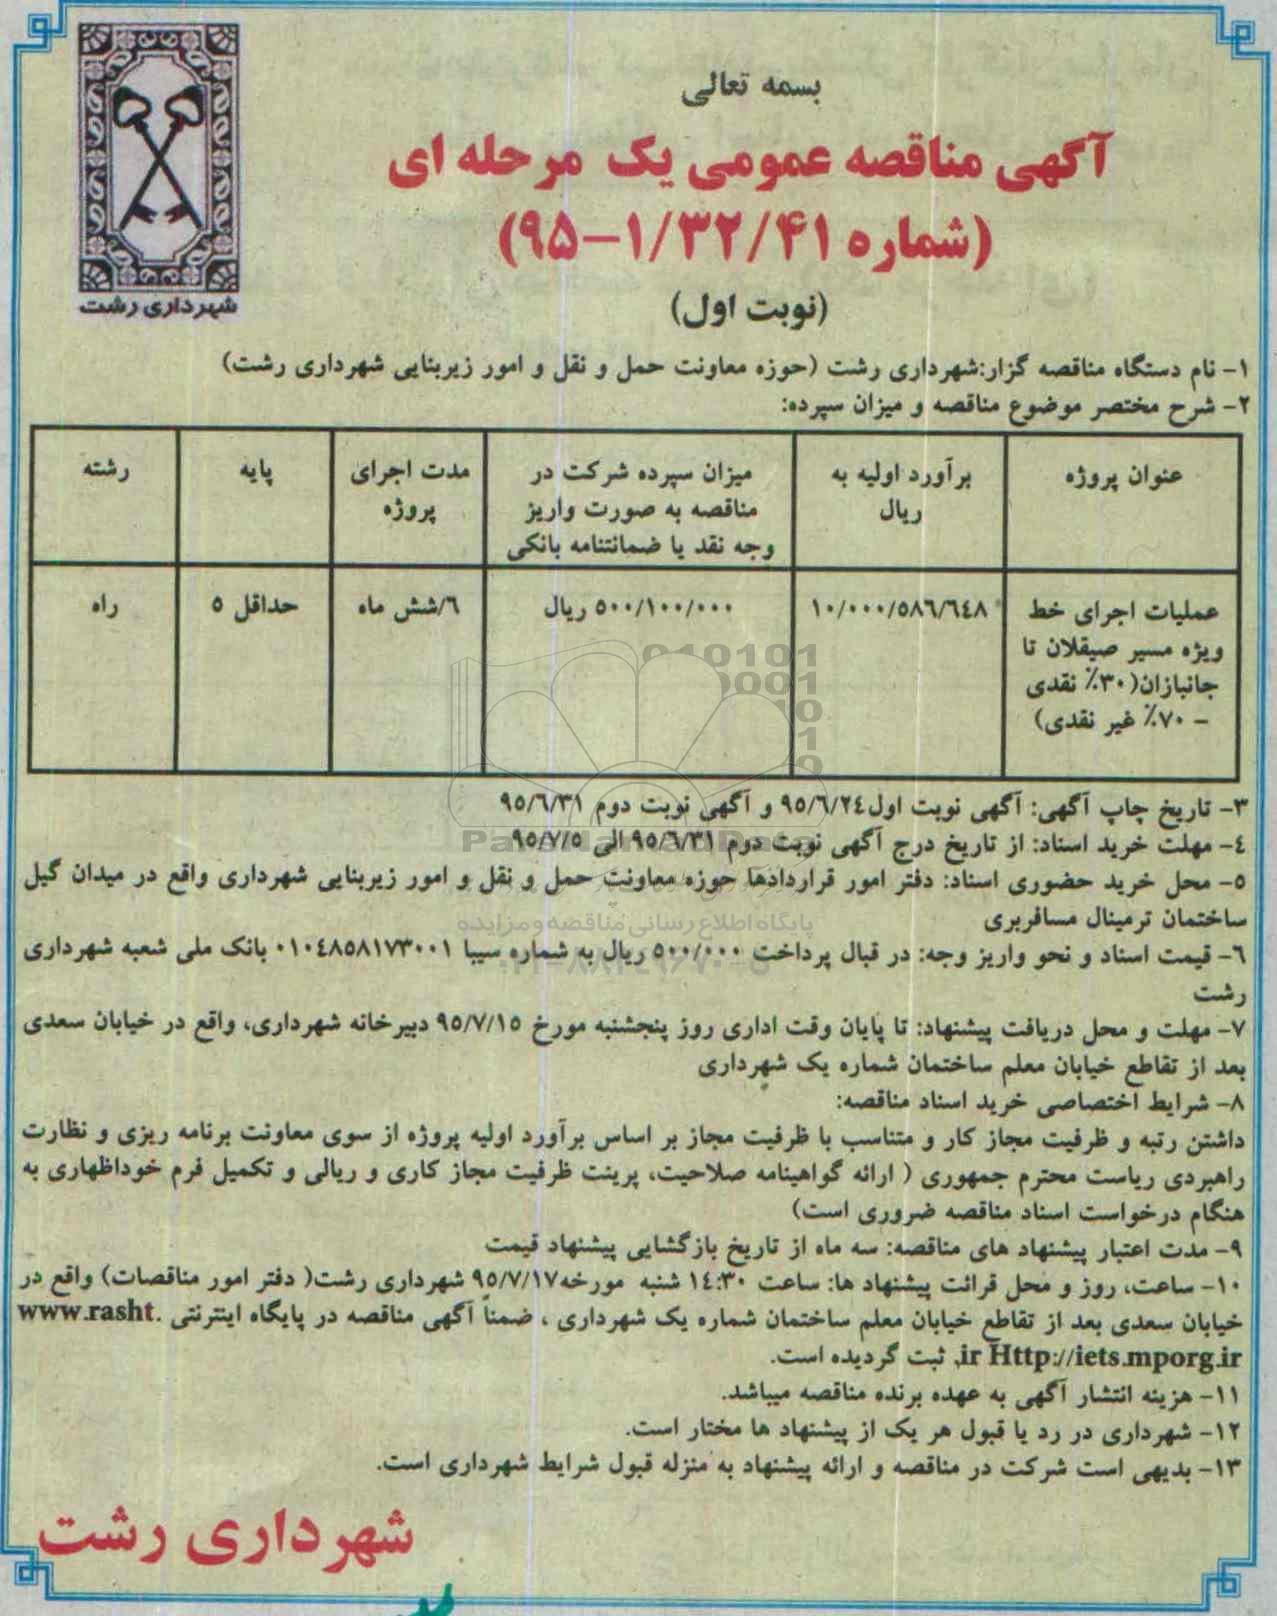 بسمه تعالی
آگهی مناقصه عمومی یک مرحله ای
(شماره ۹۵–۱/۳۲/۴۱)
(نوبت اول)
شهرداری رشت
۱- نام دستگاه مناقصه گزار:شهرداری رشت (حوزه معاونت حمل و نقل و امور زیربنایی شهرداری رشت)
۲- شرح مختصر موضوع مناقصه و میزان سپرده:
عنوان پروژه
برآورد اولیه به
ریال
میزان سپرده شرکت در
مناقصه به صورت واریز
وجه نقد یا ضمانتنامه بانکی
مدت اجرای
پروژه
پایه
رشته
عملیات اجرای خط
ویژه مسیر صیقلان تا
جانبازان(۳۰٪ نقدی
- ۷۰٪ غیر نقدی)
۱۰/۰۰۰/۵۸۶/۶۴۸
۵۰۰/۱۰۰/۰۰۰ ریال
۶/شش ماه
حداقل ۵
راه
۳- تاریخ چاپ آگهی: آگهی نوبت اول۹۵/۶/۲۴ و آگهی نوبت دوم ۹۵/۶/۳۱
۴- مهلت خرید اسناد: از تاریخ درج آگهی نوبت دوم ۹۵/۶/۳۱ الی ۹۵/۷/۵
۵- محل خرید حضوری اسناد: دفتر امور قراردادها حوزه معاونت حمل و نقل و امور زیربنایی شهرداری واقع در میدان گیل
ساختمان ترمینال مسافربری
پایگاه اطلاع رسانی مناقصه و مزایده
۶- قیمت اسناد و نحو واریز وجه: در قبال پرداخت ۵۰۰/۰۰۰ ریال به شماره سیبا ۰۱۰۴۸۵۸۱۷۳۰۰۱ بانک ملی شعبه شهرداری
رشت
۷- مهلت و محل دریافت پیشنهاد: تا پایان وقت اداری روز پنجشنبه مورخ ۹۵/۷/۱۵ دبیرخانه شهرداری، واقع در خیابان سعدی
بعد از تقاطع خیابان معلم ساختمان شماره یک شهرداری
۸- شرایط اختصاصی خرید اسناد مناقصه:
داشتن رتبه و ظرفیت مجاز کار و متناسب با ظرفیت مجاز بر اساس برآورد اولیه پروژه از سوی معاونت برنامه ریزی و نظارت
راهبردی ریاست محترم جمهوری ( ارائه گواهینامه صلاحیت، پرینت ظرفیت مجاز کاری و ریالی و تکمیل فرم خوداظهاری به
هنگام درخواست اسناد مناقصه ضروری است)
۹- مدت اعتبار پیشنهاد های مناقصه: سه ماه از تاریخ بازگشایی پیشنهاد قیمت
۱۰- ساعت، روز و محل قرائت پیشنهاد ها: ساعت ۱۴:۳۰ شنبه مورخه۹۵/۷/۱۷ شهرداری رشت( دفتر امور مناقصات) واقع در
خیابان سعدی بعد از تقاطع خیابان معلم ساختمان شماره یک شهرداری ، ضمناً آگهی مناقصه در پایگاه اینترنتی www.rasht.
ir Http://iets.mporg.ir, ثبت گردیده است.
۱۱- هزینه انتشار آگهی به عهده برنده مناقصه میباشد.
۱۲- شهرداری در رد یا قبول هر یک از پیشنهاد ها مختار است.
۱۳- بدیهی است شرکت در مناقصه و ارائه پیشنهاد به منزله قبول شرایط شهرداری است.
شهرداری رشت